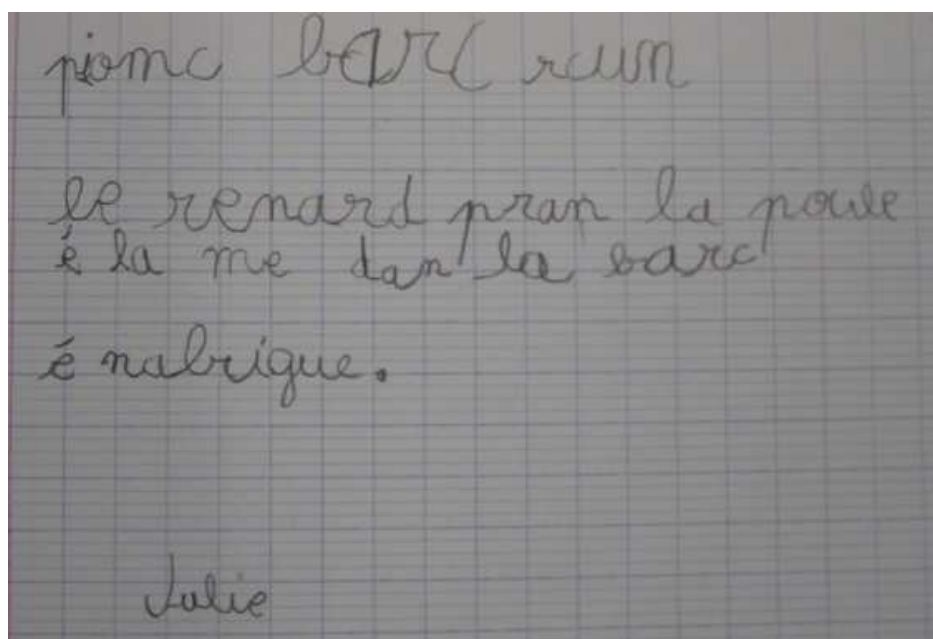 piomc barc reum
le renard pran la poule
é la me dan la barc
é nabrigue.
Julie